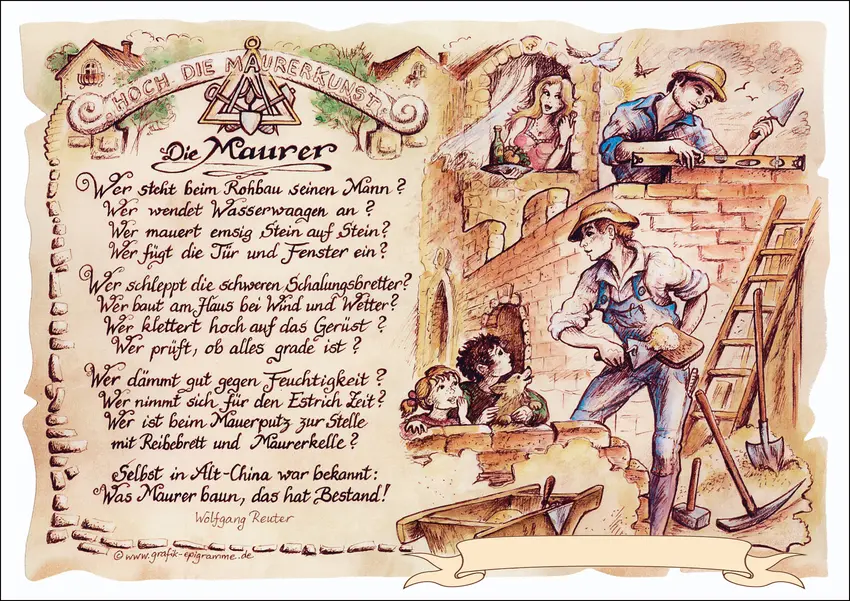 HOCH DIE MAURERKUNST
Die Maurer
Wer steht beim Rohbau seinen Mann?
Wer wendet Wasserwaagen an?
Wer mauert emsig Stein auf Stein?
Wer fügt die Tür und Fenster ein?
Wer schleppt die schweren Schalungsbretter?
Wer baut am Haus bei Wind und Wetter?
Wer klettert hoch auf das Gerüst?
Wer prüft, ob alles grade ist?
Wer dämmt gut gegen Feuchtigkeit?
Wer nimmt sich für den Estrich Zeit?
Wer ist beim Mauerputz zur Stelle
mit Reibebrett und Maurerkelle?
Selbst in Alt-China war bekannt:
Was Maurer baun, das hat Bestand!
Wolfgang Reuter
© www.grafik-epigramme.de